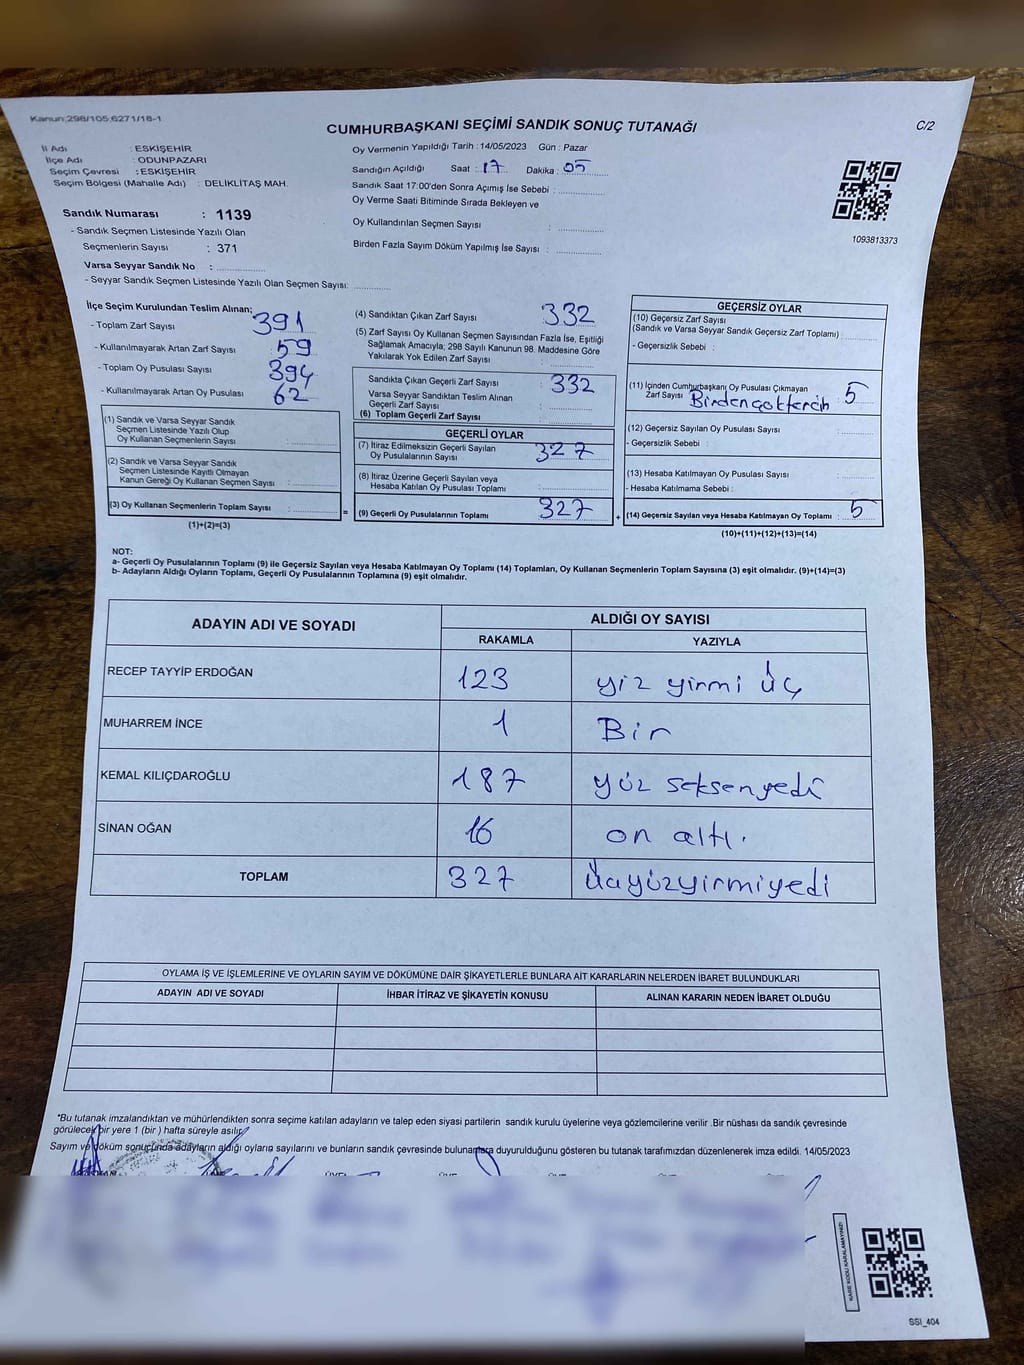 Kanun;298/105;6271/18-1
CUMHURBAŞKANI SEÇİMİ SANDIK SONUÇ TUTANAĞI
C/2
İl Adı : ESKİŞEHİR
İlçe Adı : ODUNPAZARI
Seçim Çevresi : ESKİŞEHİR
Seçim Bölgesi (Mahalle Adı) : DELİKLİTAŞ MAH.
Sandık Numarası : 1139
- Sandık Seçmen Listesinde Yazılı Olan
Seçmenlerin Sayısı : 371
Varsa Seyyar Sandık No :
- Seyyar Sandık Seçmen Listesinde Yazılı Olan Seçmen Sayısı:
Oy Vermenin Yapıldığı Tarih : 14/05/2023 Gün : Pazar
Sandığın Açıldığı Saat : 17 Dakika : 05
Sandık Saat 17:00'den Sonra Açımış İse Sebebi :
Oy Verme Saati Bitiminde Sırada Bekleyen ve
Oy Kullandırılan Seçmen Sayısı :
Birden Fazla Sayım Döküm Yapılmış İse Sayısı :
1093813373
İlçe Seçim Kurulundan Teslim Alınan;
- Toplam Zarf Sayısı : 391
- Kullanılmayarak Artan Zarf Sayısı : 59
- Toplam Oy Pusulası Sayısı : 394
- Kullanılmayarak Artan Oy Pusulası : 62
(1) Sandık ve Varsa Seyyar Sandık
Seçmen Listesinde Yazılı Olup
Oy Kullanan Seçmenlerin Sayısı :
(2) Sandık ve Varsa Seyyar Sandık
Seçmen Listesinde Kayıtlı Olmayan
Kanun Gereği Oy Kullanan Seçmen Sayısı :
(3) Oy Kullanan Seçmenlerin Toplam Sayısı :
(1)+(2)=(3)
=
(4) Sandıktan Çıkan Zarf Sayısı : 332
(5) Zarf Sayısı Oy Kullanan Seçmen Sayısından Fazla İse, Eşitliği
Sağlamak Amacıyla; 298 Sayılı Kanunun 98. Maddesine Göre
Yakılarak Yok Edilen Zarf Sayısı :
Sandıkta Çıkan Geçerli Zarf Sayısı : 332
Varsa Seyyar Sandıktan Teslim Alınan
Geçerli Zarf Sayısı :
(6) Toplam Geçerli Zarf Sayısı
GEÇERLİ OYLAR
(7) İtiraz Edilmeksizin Geçerli Sayılan
Oy Pusulalarının Sayısı : 327
(8) İtiraz Üzerine Geçerli Sayılan veya
Hesaba Katılan Oy Pusulası Toplamı :
(9) Geçerli Oy Pusulalarının Toplamı : 327
+
GEÇERSİZ OYLAR
(10) Geçersiz Zarf Sayısı
(Sandık ve Varsa Seyyar Sandık Geçersiz Zarf Toplamı) :
- Geçersizlik Sebebi :
(11) İçinden Cumhurbaşkanı Oy Pusulası Çıkmayan
Zarf Sayısı : 5
Birdençoktercih
(12) Geçersiz Sayılan Oy Pusulası Sayısı :
- Geçersizlik Sebebi :
(13) Hesaba Katılmayan Oy Pusulası Sayısı :
- Hesaba Katılmama Sebebi :
(14) Geçersiz Sayılan veya Hesaba Katılmayan Oy Toplamı : 5
(10)+(11)+(12)+(13)=(14)
NOT:
a- Geçerli Oy Pusulalarının Toplamı (9) ile Geçersiz Sayılan veya Hesaba Katılmayan Oy Toplamı (14) Toplamları, Oy Kullanan Seçmenlerin Toplam Sayısına (3) eşit olmalıdır. (9)+(14)=(3)
b- Adayların Aldığı Oyların Toplamı, Geçerli Oy Pusulalarının Toplamına (9) eşit olmalıdır.
ADAYIN ADI VE SOYADI ALDIĞI OY SAYISI
RAKAMLA YAZIYLA
RECEP TAYYİP ERDOĞAN 123 yiz yirmi üç
MUHARREM İNCE 1 Bir
KEMAL KILIÇDAROĞLU 187 yüz seksenyedi
SİNAN OĞAN 16 on altı.
TOPLAM 327 üçyüzyirmiyedi
OYLAMA İŞ VE İŞLEMLERİNE VE OYLARIN SAYIM VE DÖKÜMÜNE DAİR ŞİKAYETLERLE BUNLARA AİT KARARLARIN NELERDEN İBARET BULUNDUKLARI
ADAYIN ADI VE SOYADI İHBAR İTİRAZ VE ŞİKAYETİN KONUSU ALINAN KARARIN NEDEN İBARET OLDUĞU
*Bu tutanak imzalandıktan ve mühürlendikten sonra seçime katılan adayların ve talep eden siyasi partilerin sandık kurulu üyelerine veya gözlemcilerine verilir .Bir nüshası da sandık çevresinde
görülecek bir yere 1 (bir ) hafta süreyle asılır.
Sayım ve döküm sonucunda adayların aldığı oyların sayılarını ve bunların sandık çevresinde bulunanlara duyurulduğunu gösteren bu tutanak tarafımızdan düzenlenerek imza edildi. 14/05/2023
KARE KODU KARALAMAYINIZ!
SSI_404